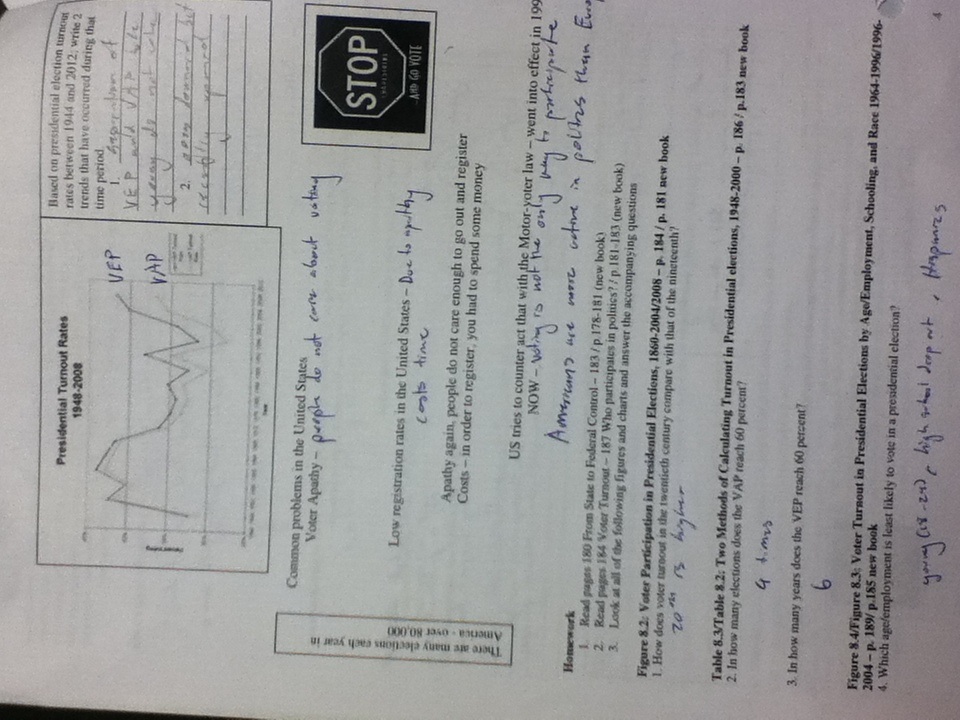 Presidential Turnout Rates
1948-2008
VEP
VAP
Based on presidential election turnout
rates between 1944 and 2012; write 2
trends that have occurred during that
time period.
1. separation of
VEP and VAP
young do not vote
2. down but
recently upward
There are many elections each year in
America - over 80,000
Common problems in the United States
Voter Apathy – people do not care about voting
STOP
...AND GO VOTE
Low registration rates in the United States – Due to apathy
costs time
Apathy again, people do not care enough to go out and register
Costs – in order to register, you had to spend some money
US tries to counter act that with the Motor-voter law – went into effect in 199
NOW – voting is not the only way to participate
Americans are more active in politics than Euro
Homework
1. Read pages 180 From State to Federal Control – 183 / p.178-181 (new book)
2. Read pages 184 Voter Turnout – 187 Who participates in politics? / p.181-183 (new book)
3. Look at all of the following figures and charts and answer the accompanying questions
Figure 8.2: Voter Participation in Presidential Elections, 1860-2004/2008 – p. 184 / p. 181 new book
1. How does voter turnout in the twentieth century compare with that of the nineteenth?
20th is higher
Table 8.3/Table 8.2: Two Methods of Calculating Turnout in Presidential elections, 1948-2000 – p. 186 / p.183 new book
2. In how many elections does the VAP reach 60 percent?
4 times
3. In how many years does the VEP reach 60 percent?
6
Figure 8.4/Figure 8.3: Voter Turnout in Presidential Elections by Age/Employment, Schooling, and Race 1964-1996/1996-
2004 – p. 189/ p.185 new book
4. Which age/employment is least likely to vote in a presidential election?
young (18-24), high school drop out, Hispanics
4